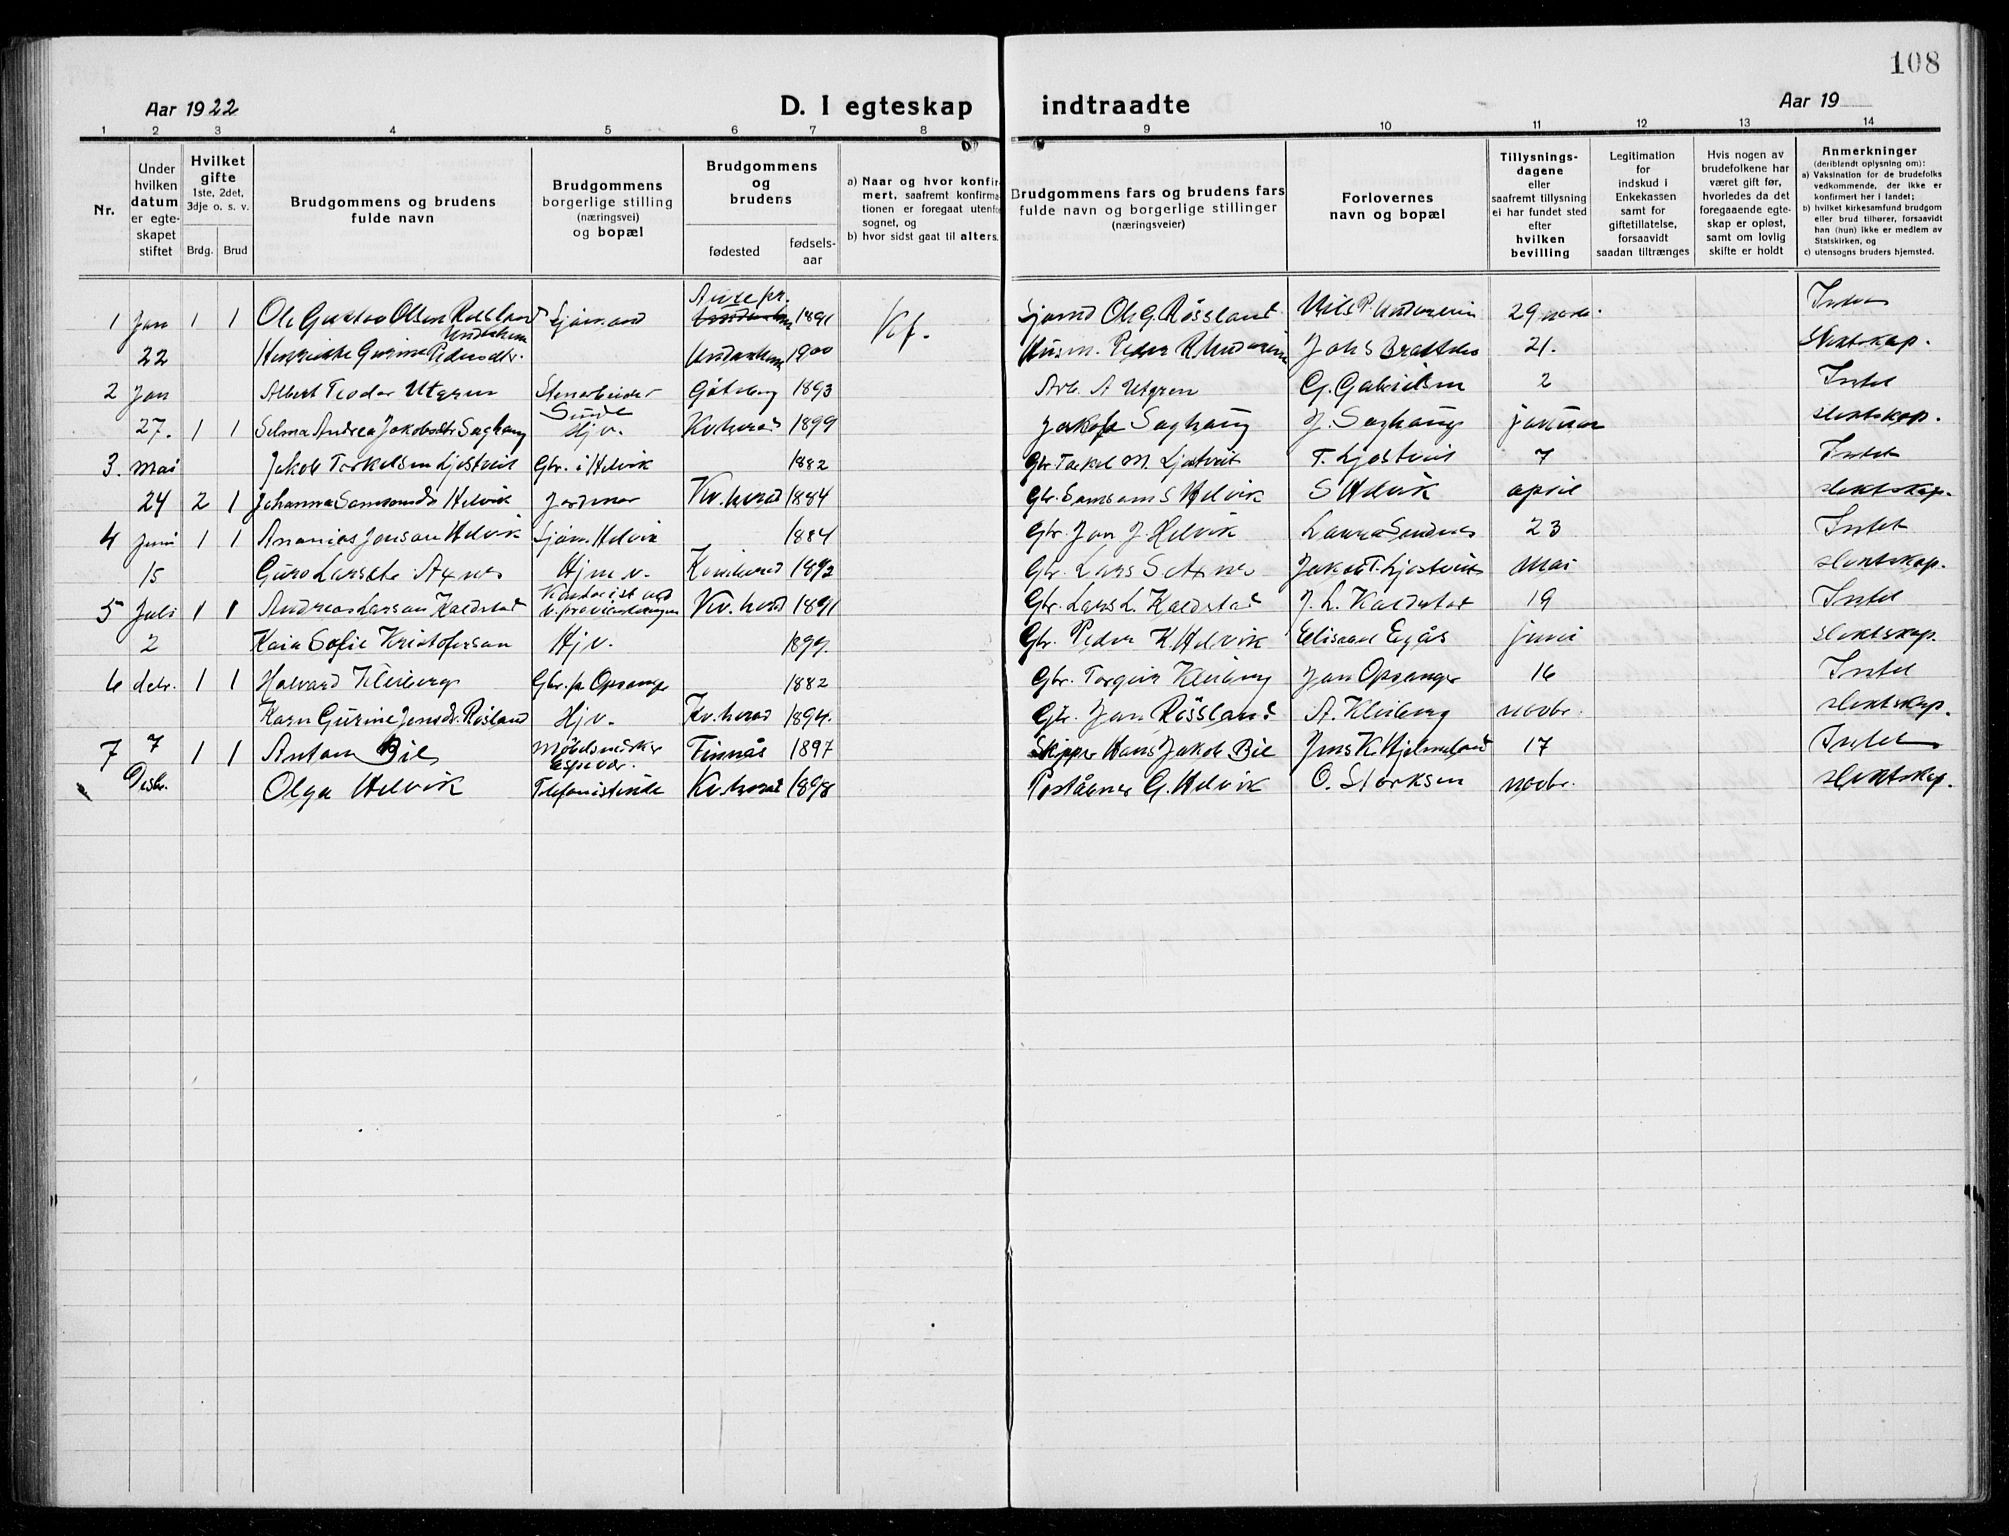 108
Aar 1922
D. I egteskap indtraadte
Aar 19
1 2 3 4 5 6 7 8 9 10 11 12 13 14
Nr.
Under hvilken datum er egteskapet stiftet
Hvilket gifte
1ste, 2det, 3dje o. s. v.
Brdg. Brud
Brudgommens og brudens fulde navn
Brudgommens borgerlige stilling (næringsvei) og bopæl
Brudgommens og brudens
fødested
fødselsaar
a) Naar og hvor konfirmert, saafremt konfirmationen er foregaat utenfor sognet, og
b) hvor sidst gaat til alters.
Brudgommens fars og brudens fars fulde navn og borgerlige stillinger (næringsveier)
Forlovernes navn og bopæl
Tillysningsdagene eller saafremt tillysning ei har fundet sted efter hvilken bevilling
Legitimation for indskud i Enkekassen samt for giftetillatelse, forsaavidt saadan tiltrænges
Hvis nogen av brudefolkene har været gift før, hvorledes da det foregaaende egteskap er opløst, samt om lovlig skifte er holdt
Anmerkninger
(deriblandt oplysning om):
a) Vaksination for de brudefolks vedkommende, der ikke er konfirmert her i landet;
b) hvilket kirkesamfund brudgom eller brud tilhører, forsaavidt han (hun) ikke er medlem av Statskirken, og
c) utensogns bruders hjemsted.
1 Jan 1 1 Ole Gustav Olsen 1891 Kf. Ole G. Røssland 29 Intet
22 Gurine Pedersdtr. 1900 Husm. Peder 21. Slektskap.
2 Jan Albert Teodor Utgren Stenarbeider Göteborg 1893 Arb. A Utgren G. Gabrielsen 2 Intet
Sunde
27. 1 1 Selma Andrea Jakobsdtr Saghaug Hjv. Kv.herad 1899 Jakob Saghaug J. Saghaug januar slektskap.
3. Mai Jakob Torkelsen Ljostveit Gbr. i Helvik 1882 Gbr Torkel M. Ljostveit T. Ljostveit 7 Intet
24 2 1 Johanna Helvik Jordmor Kv.herad 1884 Gbr. Samson S Helvik S Helvik april slektskap.
4 Juni 1 1 Ananias Jonsen Helvik Sjøm. Helvik 1884 Gbr. Jon J. Helvik 23 Intet
15 Guro Larsdtr Axnes Hjm v. 1892 Gbr. Lars S Axnes Jakob T. Ljostveit Mai slektskap.
5 Juli 1 1 Andreas Larsen Kaldstad Kv. herad 1891 Gbr. Lars L. Kaldstad J. L. Kaldstad 19 Intet
2 Kaia Sofie Kristofersen Hjv. 1899. Gbr. Peder K Helvik juni slektskap.
6 1 1 Halvard Kleiberg Gbr. på Opsanger 1882 Gbr. Torgeir Kleiberg Jon Opsanger 16 Intet
Karn Gurine Jensdr. Røsland Hjv. Kv.herad 1894. Gbr. Jon Røssland A. Kleiberg novbr. slektskap.
7 7 1 1 Anton Bie Møbelsnedker Finnås 1897 Skipper Hans Jakob Bie Jens K. Hjelmeland 17 Intet
Espevær.
Desbr. Olga Helvik Telefonistinde Kv.herad 1898 Poståbner G. Helvik O. Storksen novbr. slektskap.